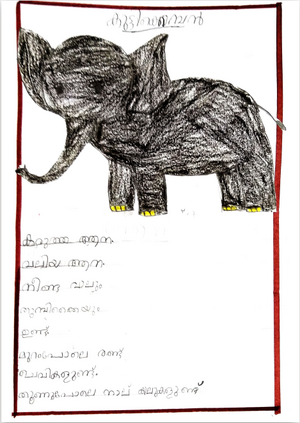 കുട്ടിക്കൊമ്പൻ
കറുത്ത ആന
വലിയ ആന
നീണ്ട വാലും
തുമ്പിക്കൈയും
ഉണ്ട്
മുറംപോലെ രണ്ട്
ചെവികളുണ്ട്.
തൂണുപോലെ നാല് കാലുകളുണ്ട്